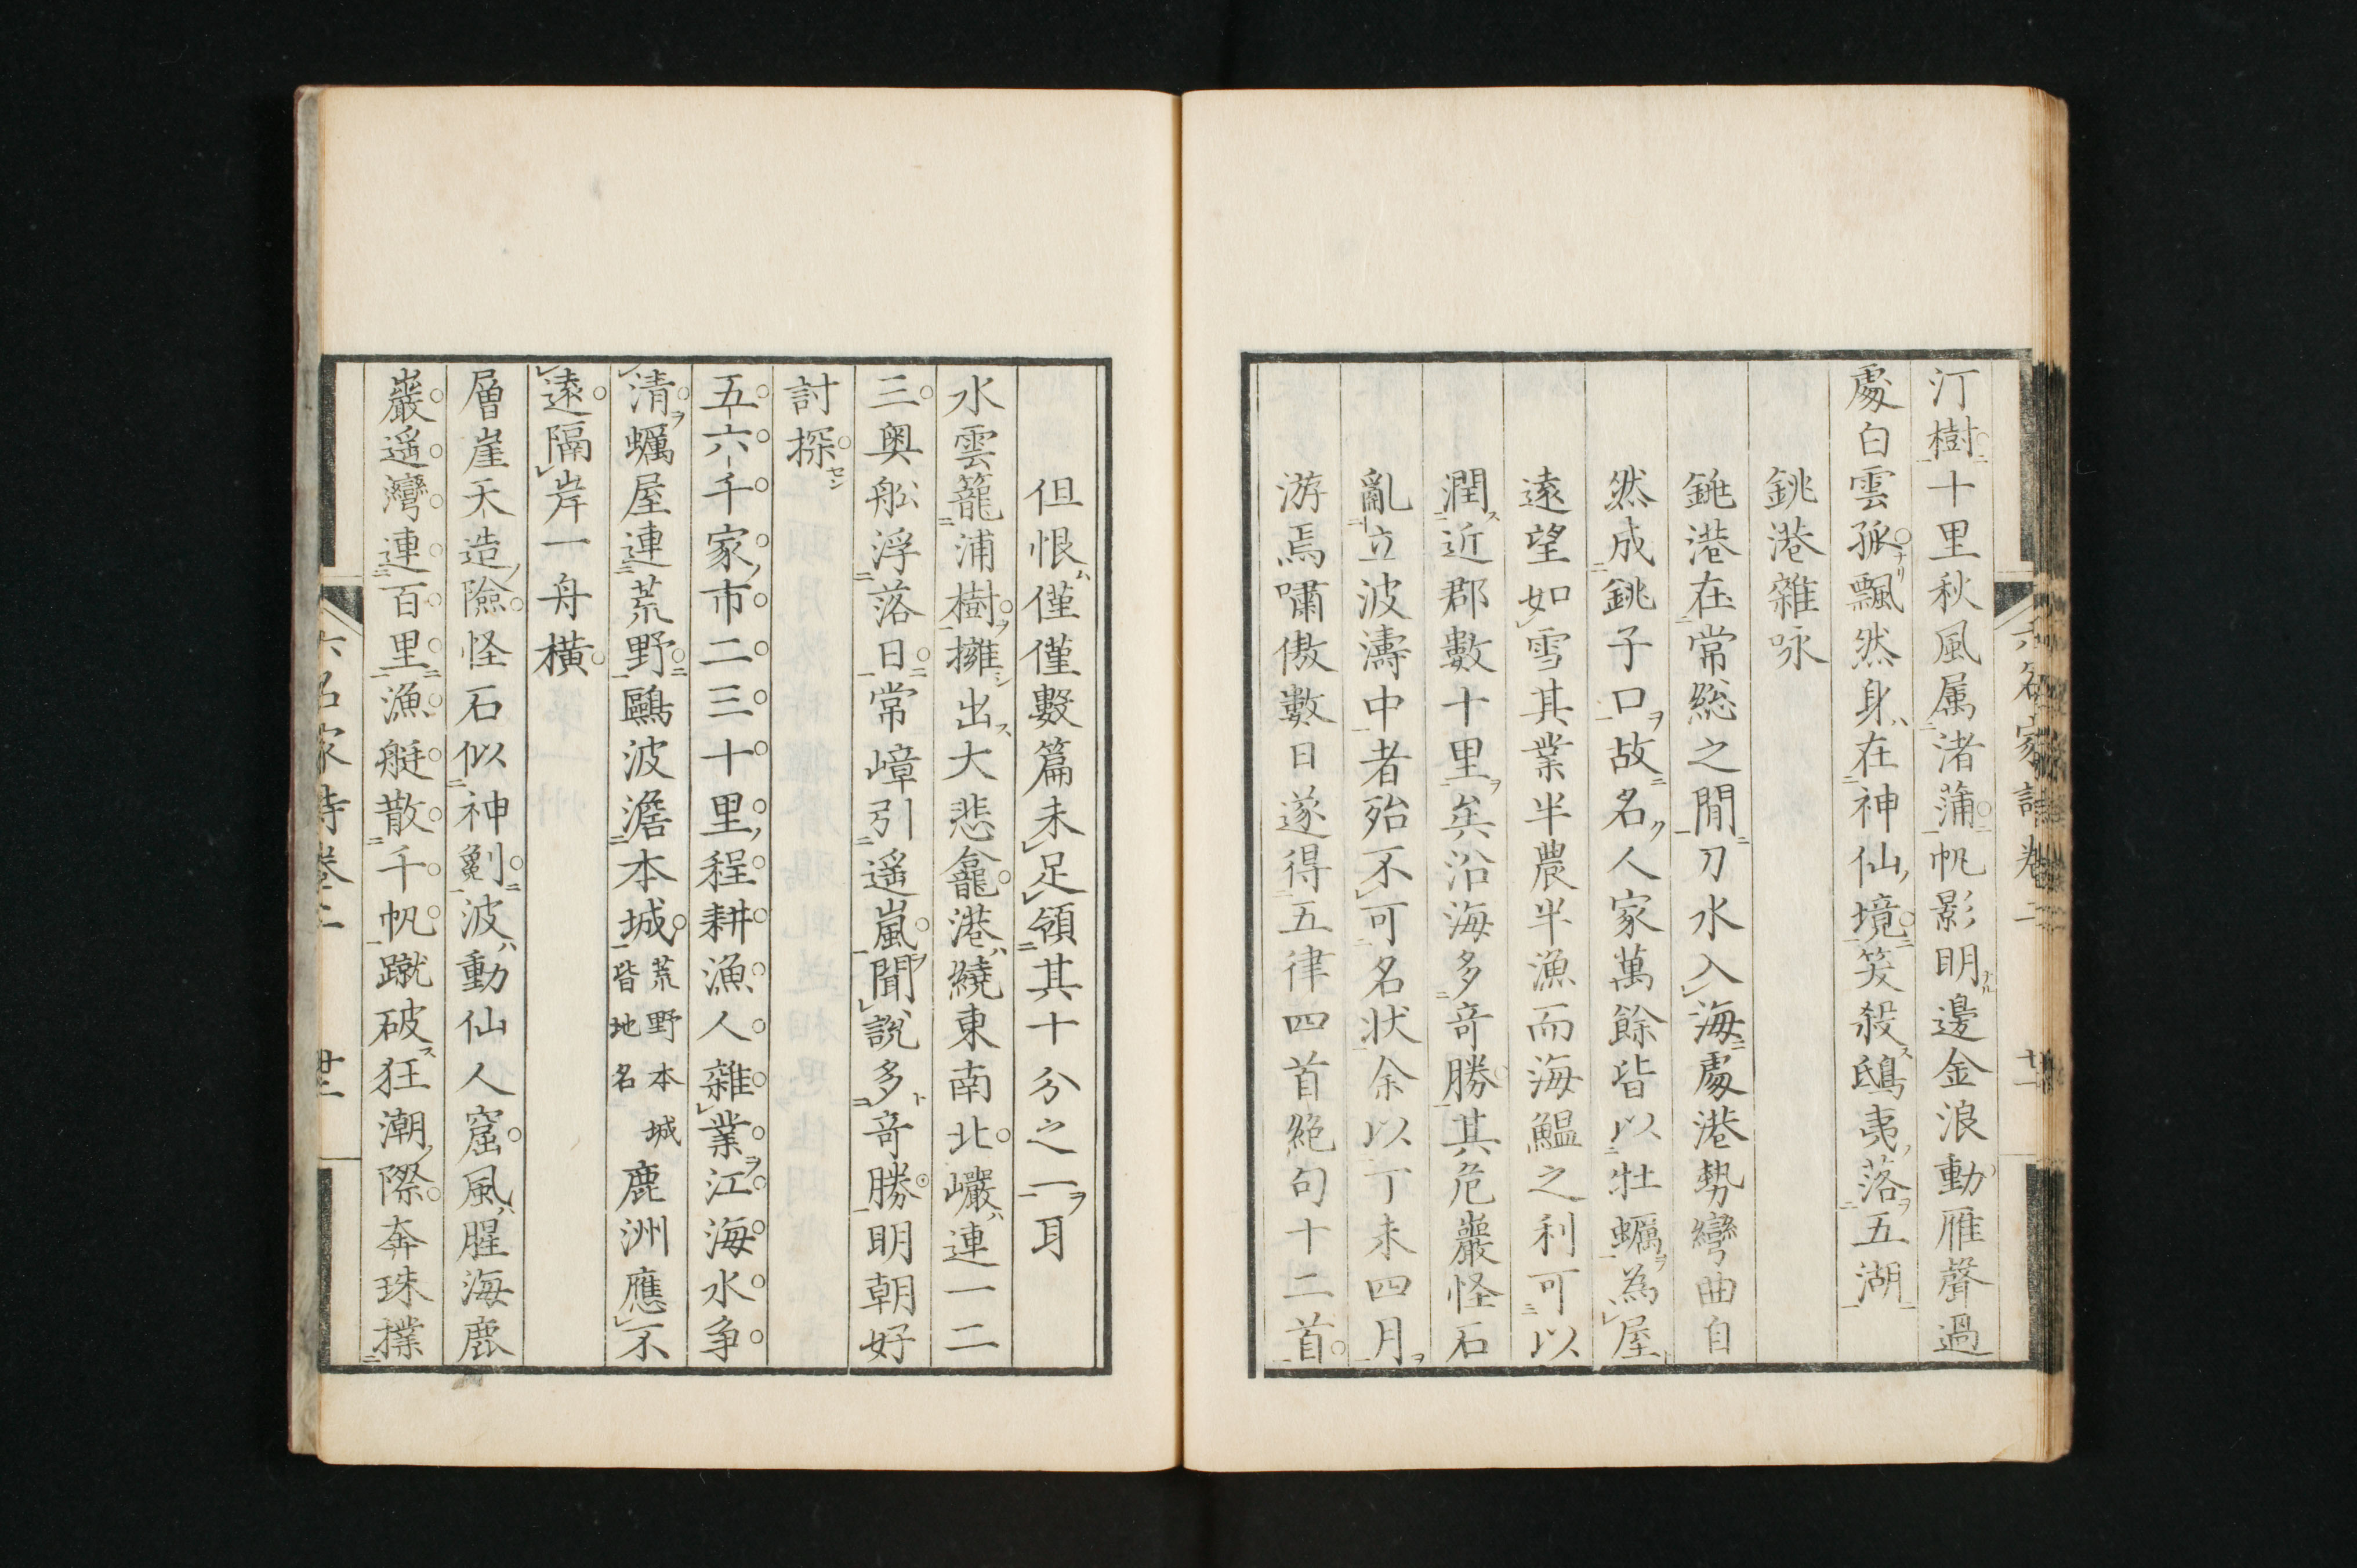 汀樹十里秋風属渚蒲帆影明邊金浪動雁聲過
處白雲孤飄然身在神仙境笑殺鴟夷落五湖
銚港雜咏
銚港在常総之間刀水入海處港勢彎曲自
然成銚子口故名人家萬餘皆以牡蠣為屋
遠望如雪其業半農半漁而海鰮之利可以
潤近郡數十里矣沿海多竒勝其危巖怪石
亂立波濤中者殆不可名状余以丁未四月
游焉嘯傲數日遂得五律四首絶句十二首
但恨僅僅數篇未足領其十分之一耳
水雲籠浦樹擁出大悲龕港繞東南北巗連一二
三奥舩浮落日常嶂引遥嵐聞説多竒勝明朝好
討探
五六千家市二三十里程耕漁人雜業江海水争
清蠣屋連荒野鷗波澹本城荒野本城皆地名鹿洲應不
遠隔岸一舟横
層崖天造險怪石似神劖波動仙人窟風腥海鹿
巖遥灣連百里漁艇散千帆蹴破狂潮際奔珠撲